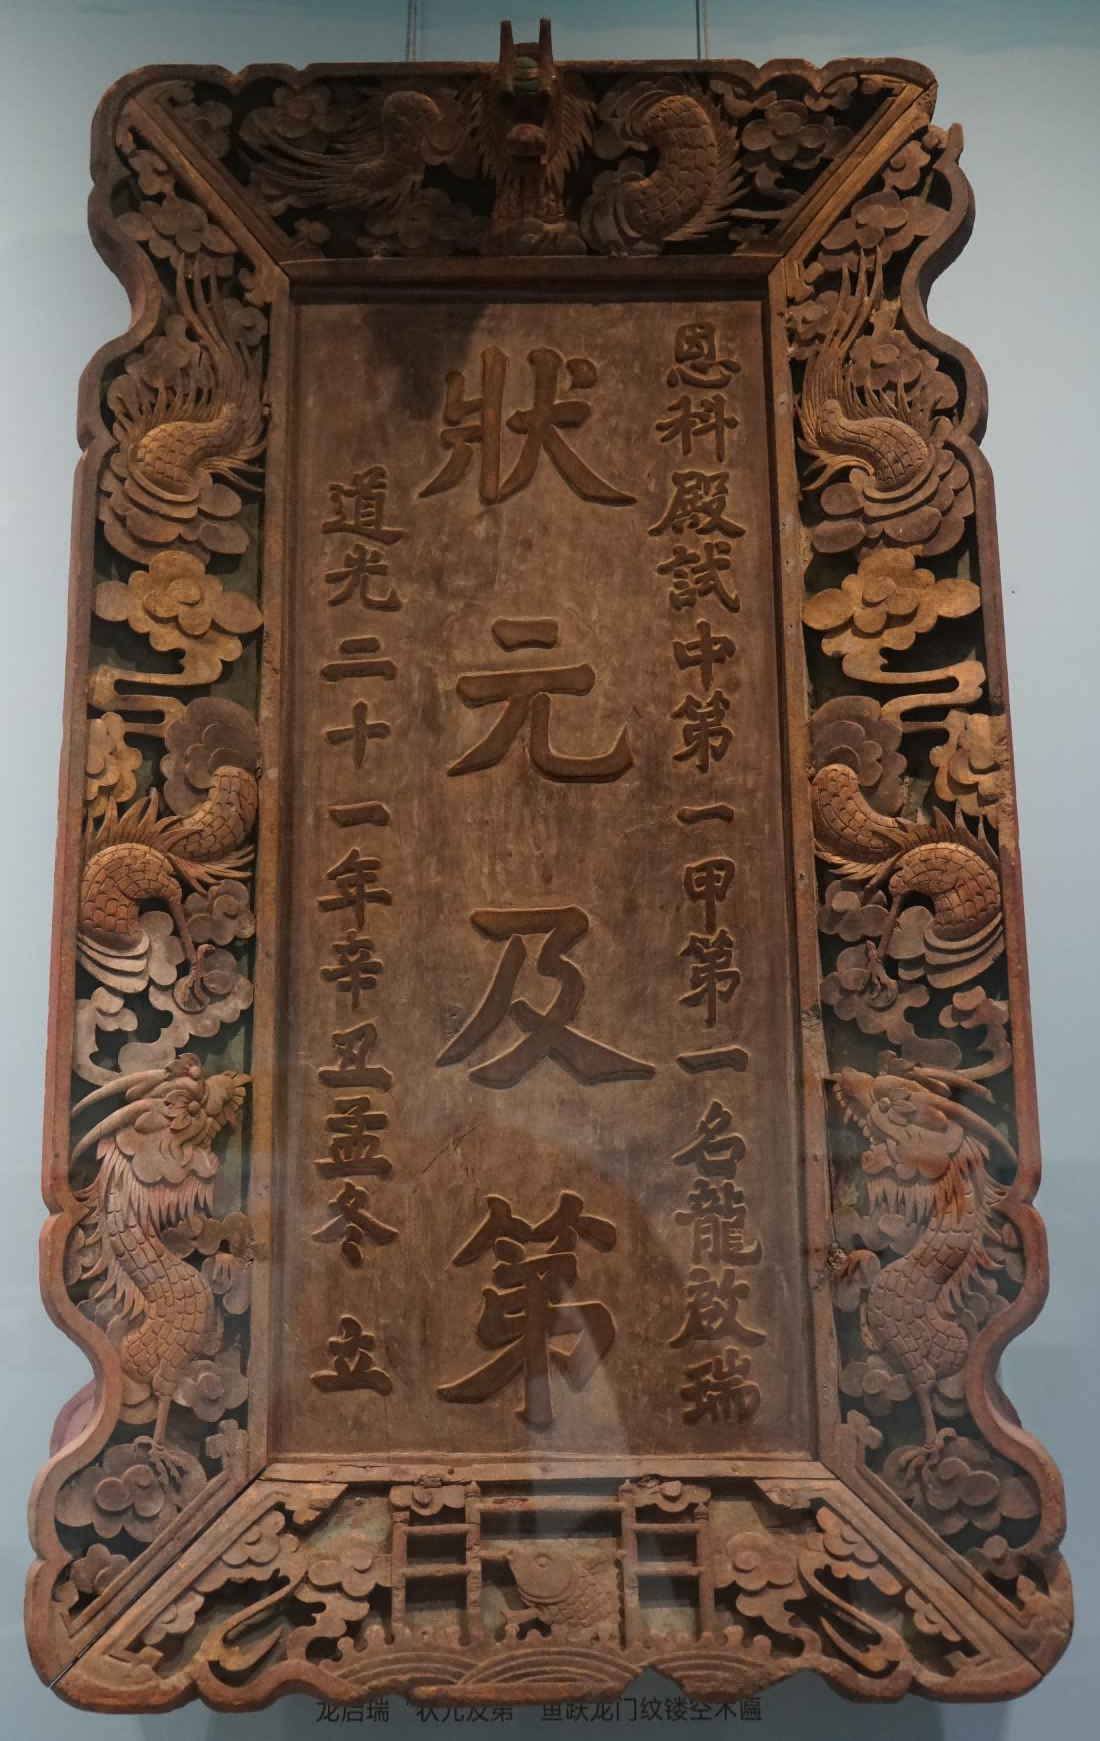 恩科殿試中第一甲第一名龍啟瑞
狀元及第
道光二十一年辛丑孟冬 立
龙启瑞“状元及第”鱼跃龙门纹镂空木匾